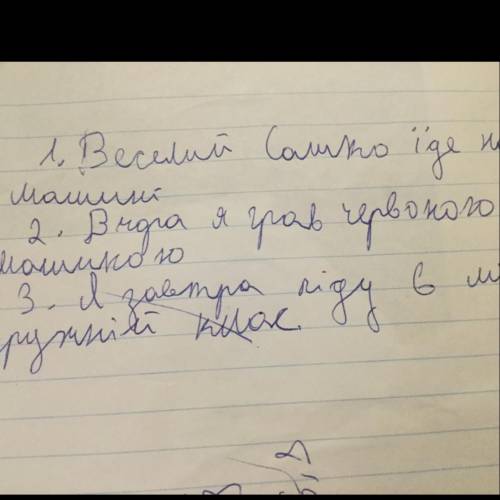 1. Веселий Сашко їде н
машині
2. Вчора я грав червоною
машикою
3. Я завтра піду в мі
ружній клас.